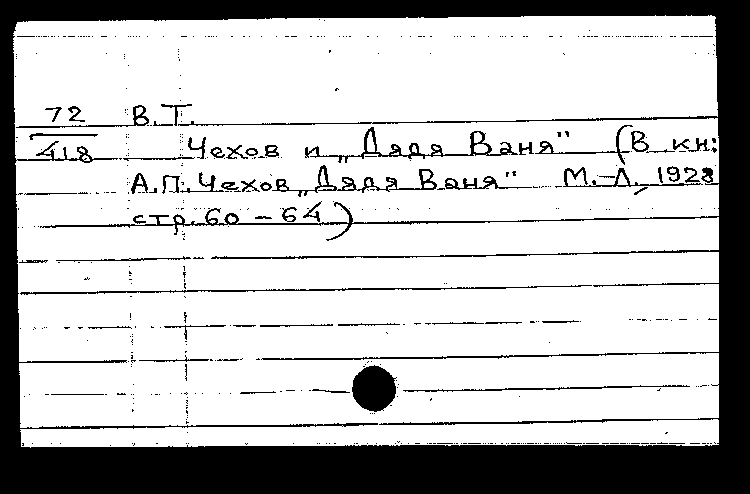 72 В.Т.
418 Чехов и „Дядя Ваня" (В кн:
А.П. Чехов „Дядя Ваня" М.-Л, 1928
стр. 60 - 64)